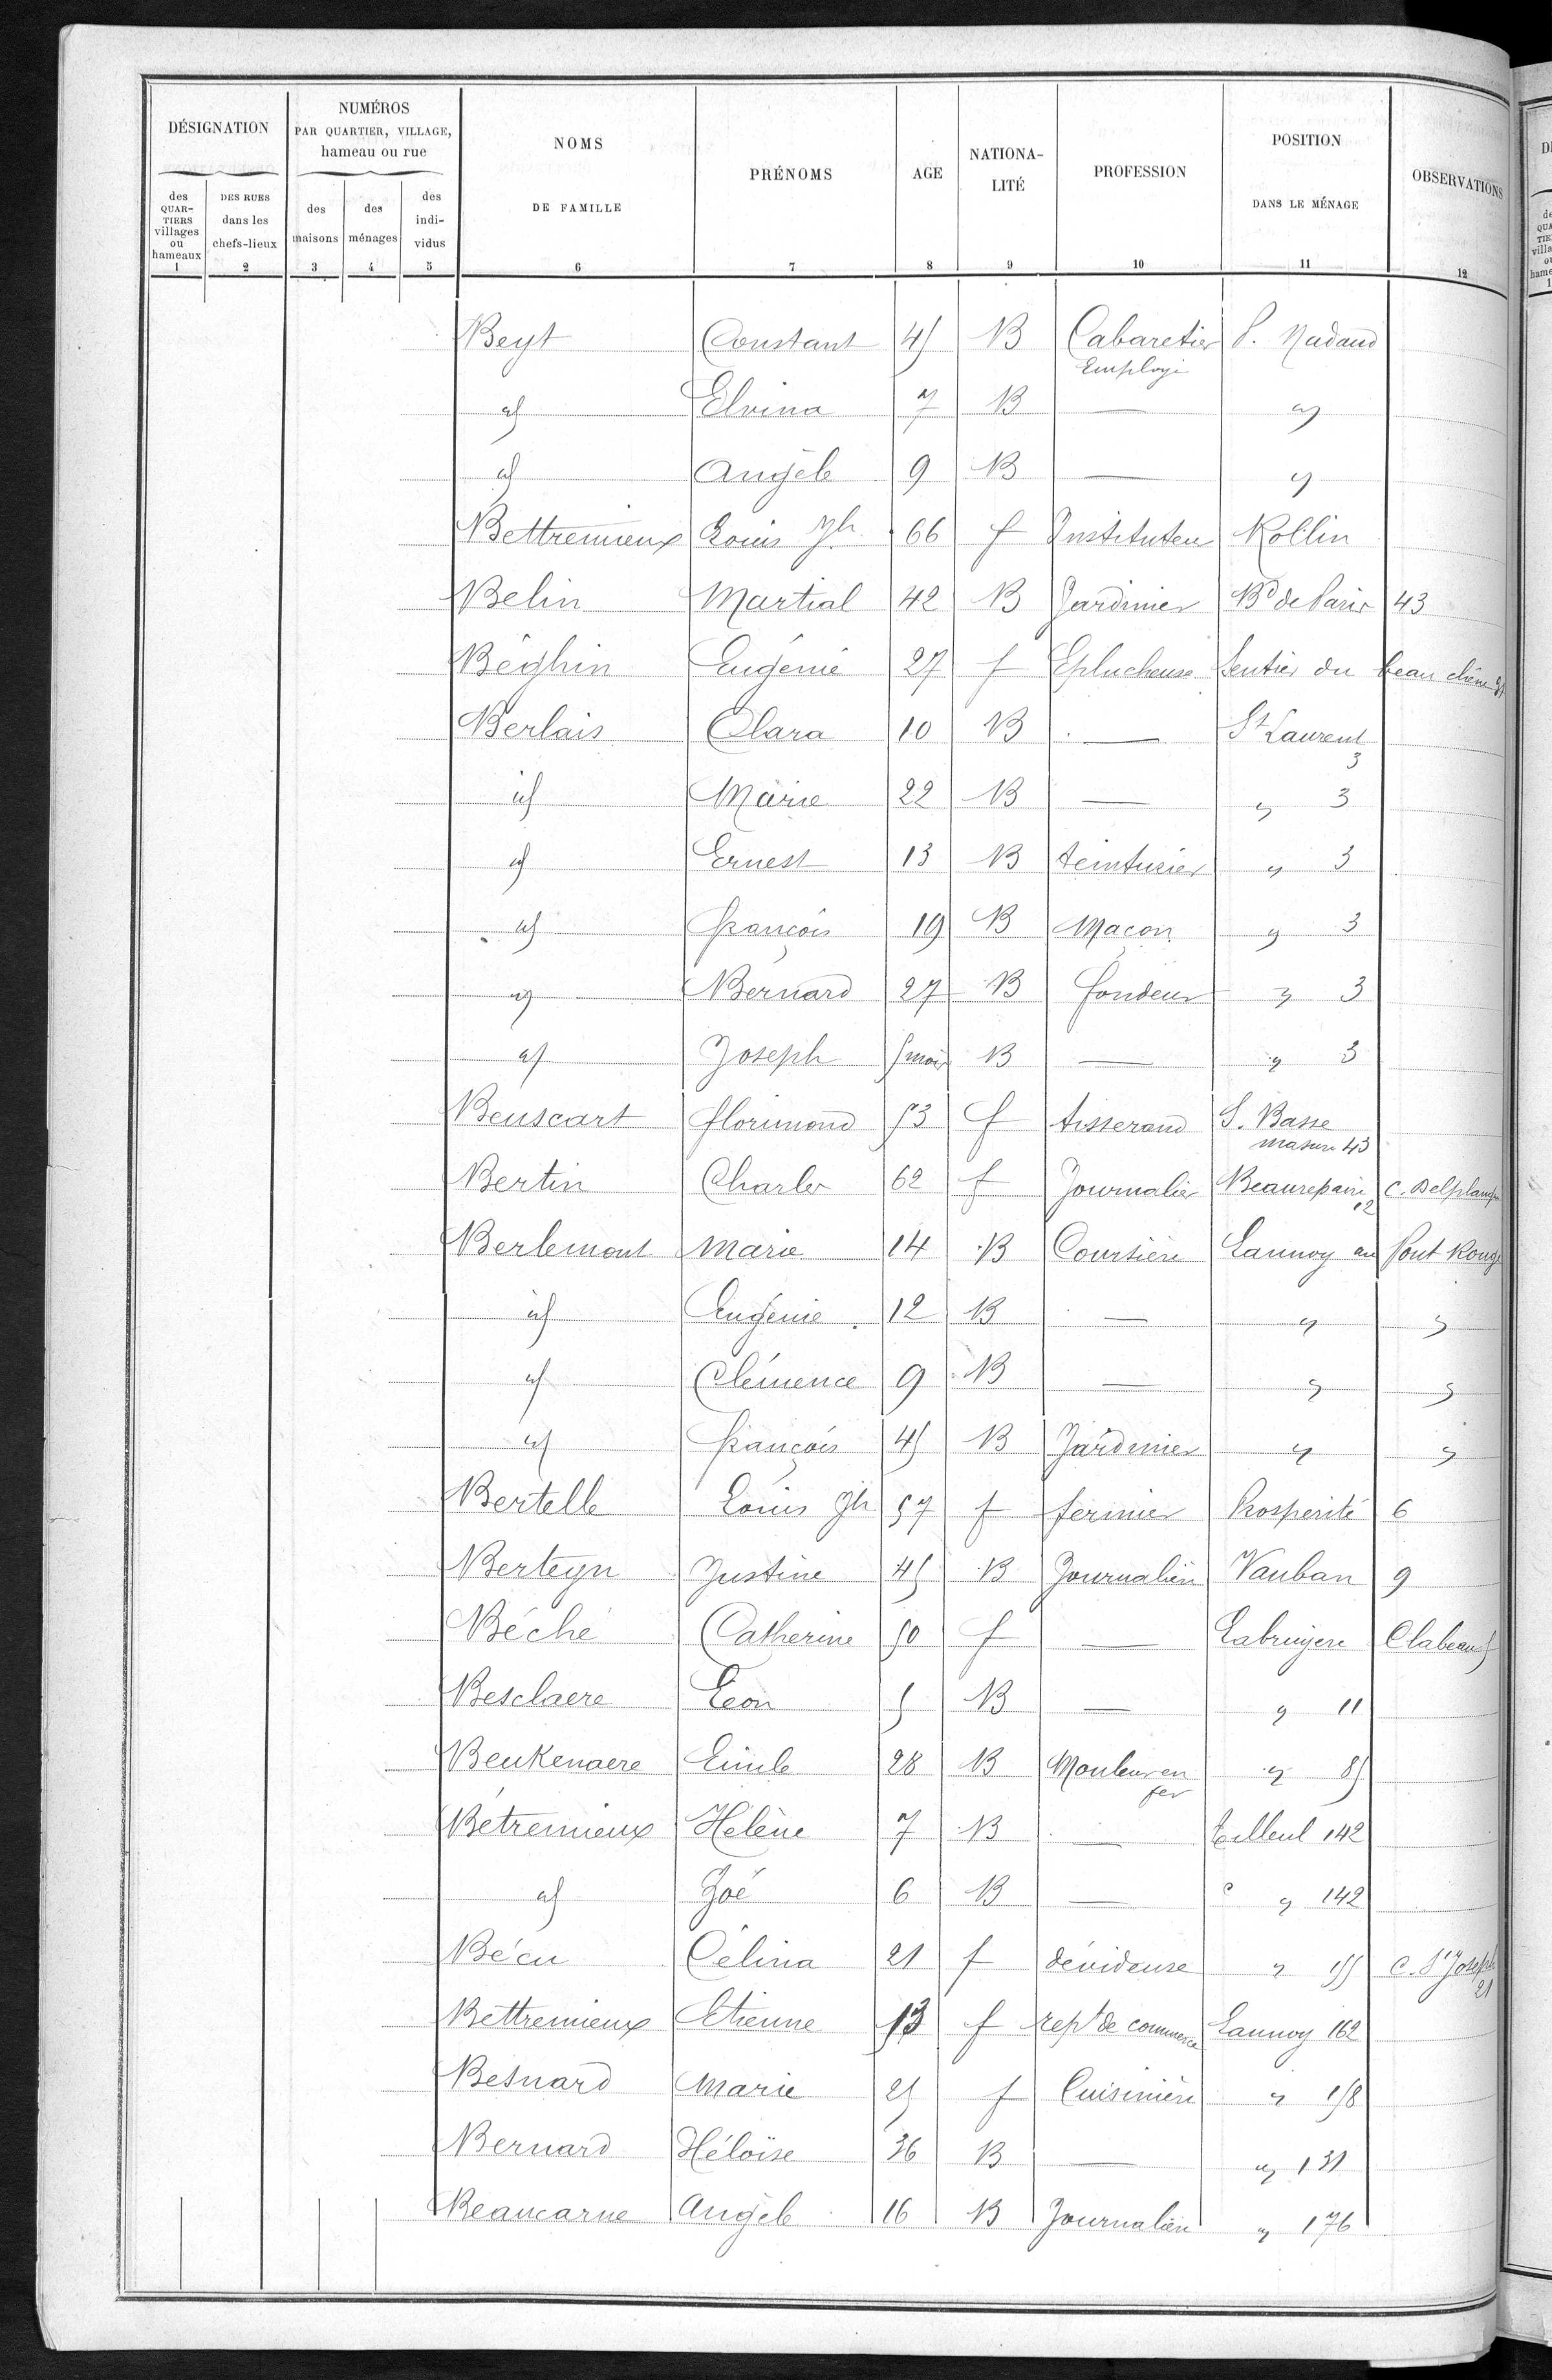 DÉSIGNATION
NUMÉROS
PAR QUARTIER, VILLAGE,
hameau ou rue
NOMS
DE FAMILLE
PRÉNOMS
AGE
NATIONA-
LITÉ
PROFESSION
POSITION
DANS LE MÉNAGE
OBSERVATIONS
des
QUAR-
TIERS
villages
ou
hameaux
DES RUES
dans les
chefs-lieux
des
maisons
des
ménages
des
indi-
vidus
1 2 3 4 5 6 7 8 9 10 11 12
Beyt Constant 45 B Cabaretier P. Nadaud
Employé
id Elvina 7 B — "
id Angèle 9 B — "
Bettremieux Louis Jh 66 f Instituteur Rollin
Belin Martial 42 B Jardinier Bd de Paris 43
Béghin Eugénie 27 f Eplucheuse Sentier du beau chêne
Berlais Clara 10 B — St Laurent
3
id Marie 22 B — " 3
id Ernest 13 B teinturier " 3
id françois 19 B Maçon " 3
id Bernard 27 B fondeur " 3
id Joseph 5 mois B — " 3
Beuscart florimond 53 f tisserand S. Basse
masure 43
Bertin Charles 62 f Journalier Beaurepaire C. Delplanque
12
Berlemont Marie 14 B Courtière Lannoy au Pont Rouge
id Eugénie 12 B — " "
id Clémence 9 B — " "
id françois 45 B Jardinier " "
Bertelle Louis Jh 57 f fermier Prosperité 6
Berteyn Justine 45 B Journalière Vauban 9
Béché Catherine 50 f — Labruyere Clabeau
Besclaere Léon 5 B — " 11
Beukenaere Emile 28 B Mouleur en " 85
fer
Bétremieux Hélène 7 B — Tilleul 142
id Zoé 6 B — " 142
Bécu Célina 21 f dévideuse " 155 C. St Joseph
21
Bettremieux Etienne 13 f rept de commerce Lannoy 162
Besnard Marie 25 f Cuisinière " 158
Bernard Héloïse 36 B — " 131
Beaucarne Angèle 16 B Journalière " 176